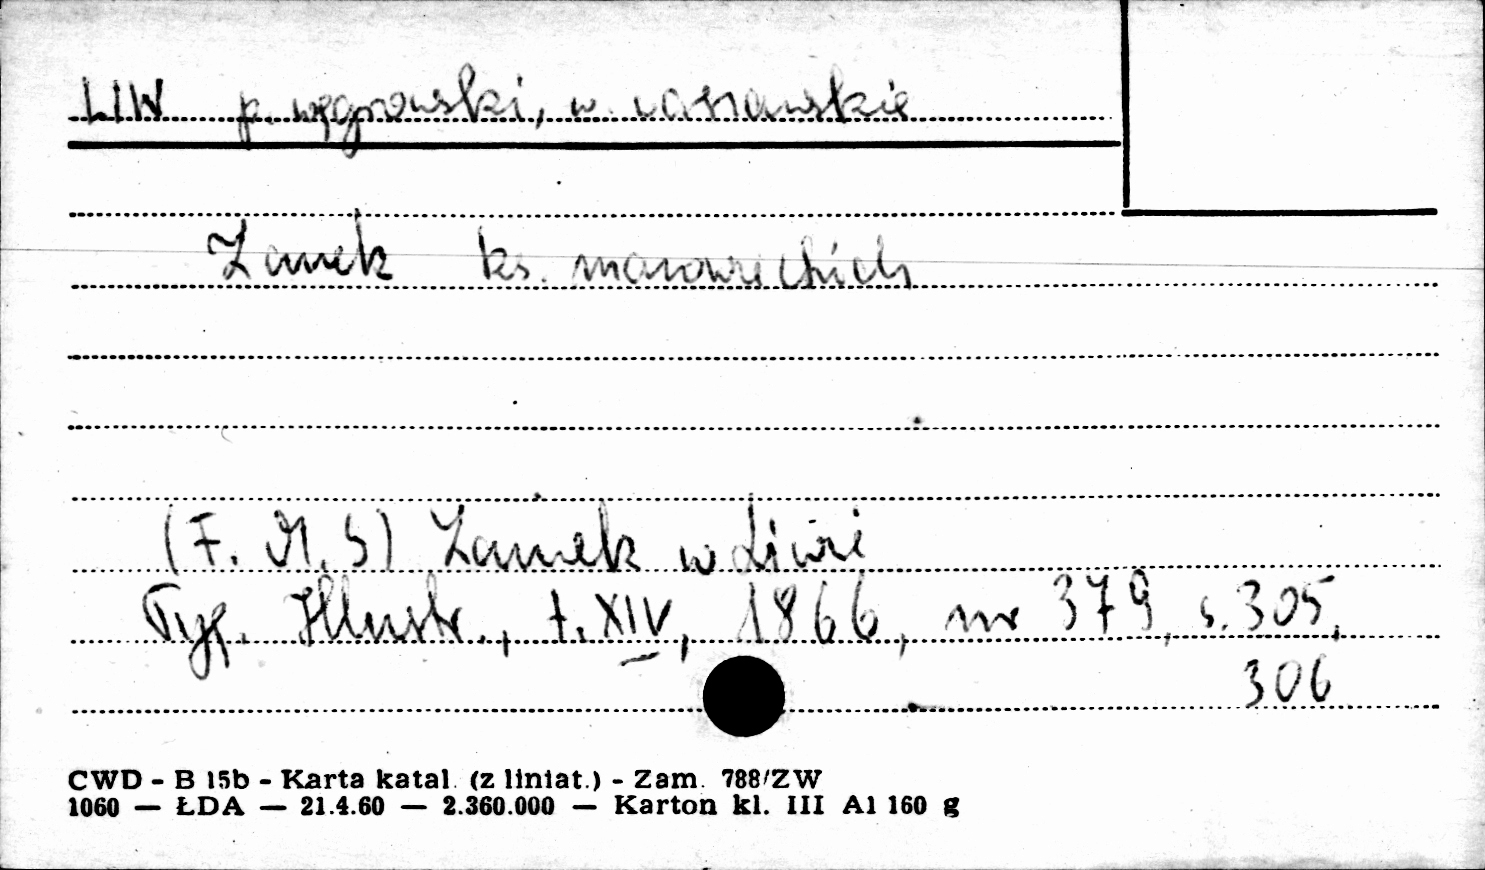 LIW p. węgrowski, w. warszawskie
Zamek ks. mazowieckich
(F. M. S) Zamek w Liwie
Tyg. Illustr., t. XIV, 1866, nr 379, s. 305,
306
CWD - B 15b - Karta katal. (z liniat.) - Zam. 788/ZW
1060 — ŁDA — 21.4.60 — 2.360.000 — Karton kl. III A1 160 g